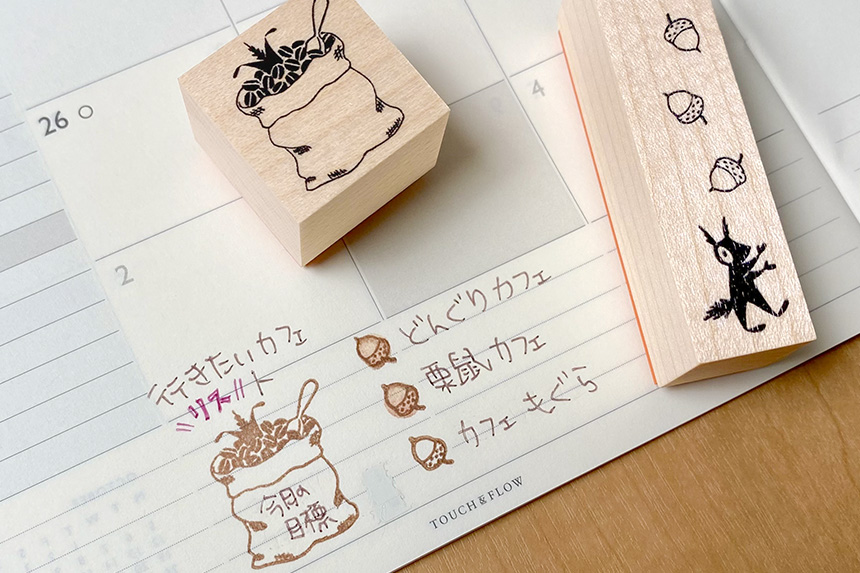 26
4
2
行きたいカフェ
リスト
どんぐりカフェ
栗鼠カフェ
カフェ もぐら
今月の
目標
TOUCH & FLOW